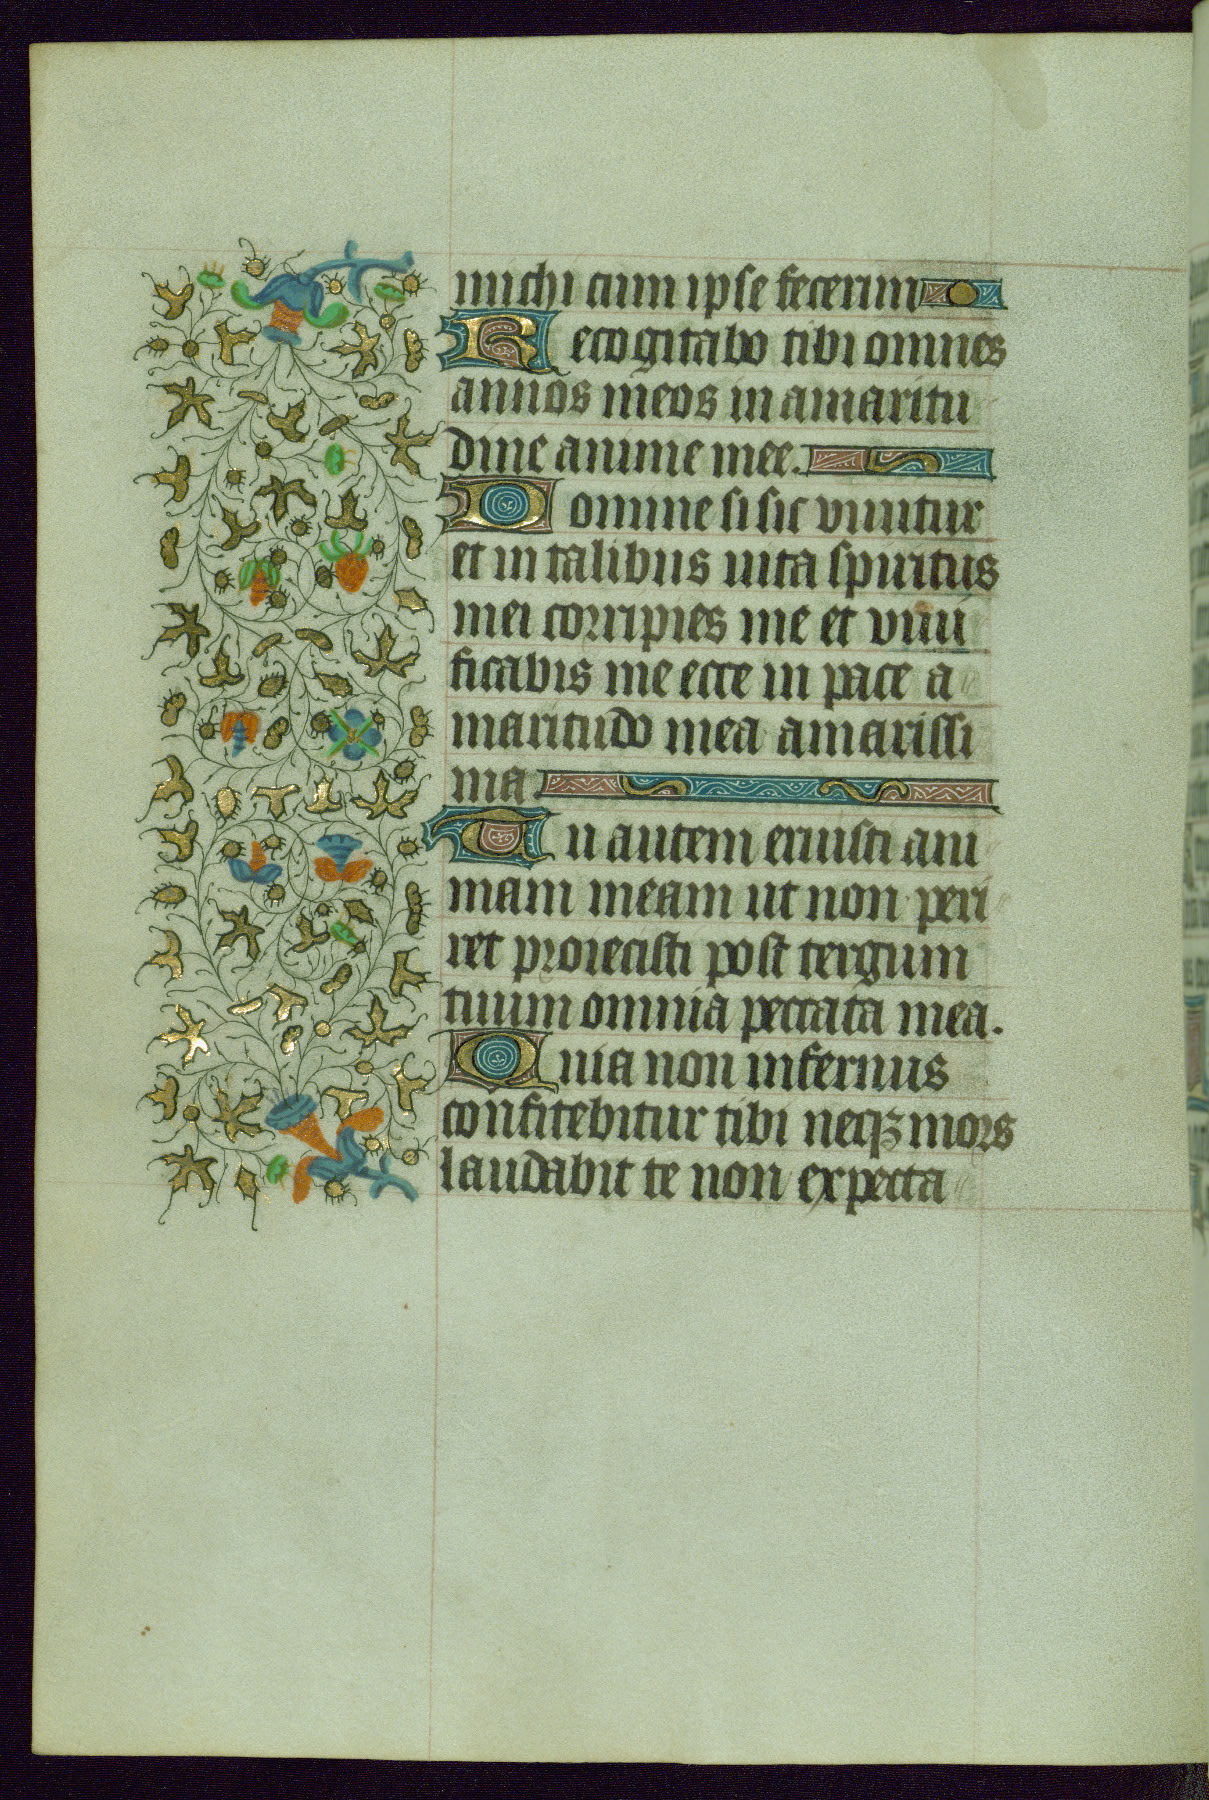 michi cum ipse fecerim
Recogitabo tibi omnes
annos meos in amaritu
dine anime mee.
Domine si sic viuitur
et in talibus uita spiritus
mei corripies me et viui
ficabis me ecce in pace a
maritudo mea amarissi
ma
Tu autem eruisti ani
mam meam ut non peri
ret proiecisti post tergum
tuum omnia peccata mea.
Quia non infernus
confitebitur tibi neqꝫ mors
laudabit te non expecta